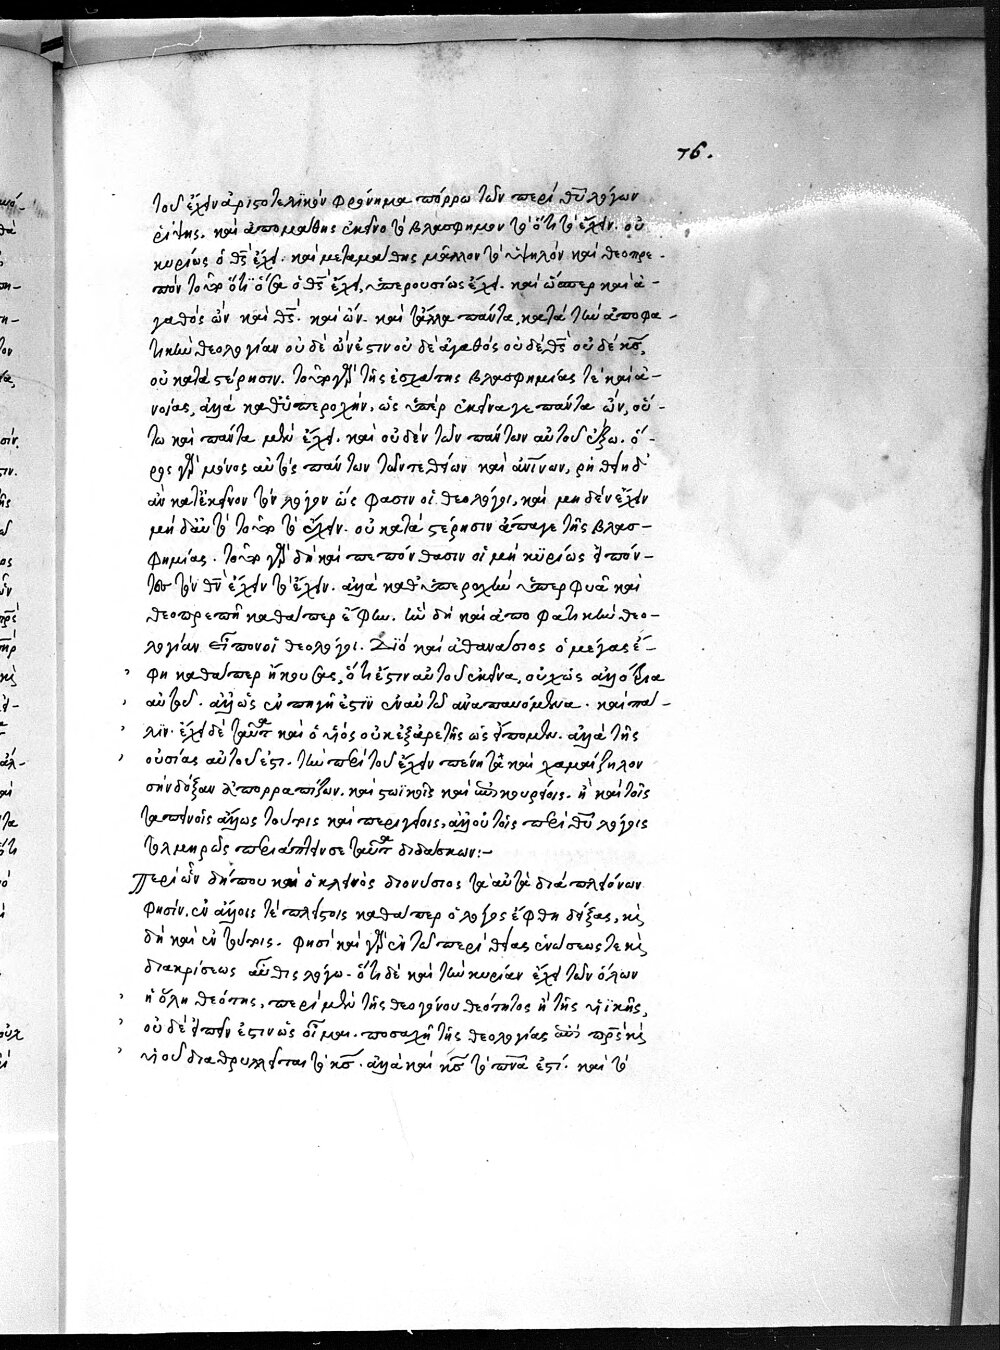 76.
τοῦ ἔχειν ἀριστοτελικὸν φρόνημα πόρρω τῶν περὶ θ̅υ̅ λόγων
ρίψῃς. καὶ ἀπομάθῃς ἐκεῖνο τὸ βλάσφημον τὸ ὅτι τὸ ἔχειν. οὐ
κυρίως ὁ θ̅ς̅ ἔχει. καὶ μεταμάθῃς μᾶλλον τὸ ὑψηλὸν καὶ θεοπρε-
πὸν τοῦτο ὅτι ὅσα ὁ θ̅ς̅ ἔχει, ὑπερουσίως ἔχει. καὶ ὥσπερ καὶ ἀ-
γαθὸς ὢν καὶ θ̅ς̅. καὶ ὤν. καὶ τἄλλα πάντα, κατὰ τὴν ἀποφα-
τικὴν θεολογίαν οὐδὲ ὤν ἐστιν οὐδὲ ἀγαθὸς οὐδὲ θ̅ς̅ οὐδὲ κ̅ς̅,
οὐ κατὰ στέρησιν. τοῦτο γὰρ τῆς ἐσχάτης βλασφημίας τὲ καὶ ἀ-
νοίας, ἀλλὰ καθ' ὑπεροχήν. ὡς ὑπὲρ ἐκεῖνα γε πάντα ὤν, οὕ-
τω καὶ πάντα μὲν ἔχει. καὶ οὐδὲν τῶν πάντων αὐτοῦ ἔξω. ὅ-
ρος γὰρ μόνος αὐτὸς πάντων τῶν τε θείων καὶ
ἂν κατ' ἐκεῖνον τὸν λόγον ὥς φασιν οἱ θεολόγοι, καὶ μηδὲν ἔχειν
μὴ δ' αὐτὸ τοῦτο τὸ ἔχειν. οὐ κατὰ στέρησιν ἄπαγε τῆς βλασ-
φημίας. τοῦτο γὰρ δὴ καὶ πεπόνθασιν οἱ μὴ κυρίως εἰπόν-
τες τὸν θ̅ν̅ ἔχειν τὸ ἔχειν. ἀλλὰ καθ' ὑπεροχὴν ὑπερφυᾶ καὶ
θεοπρεπῆ καθάπερ ἔφην. ἣν δὴ καὶ ἀποφατικὴν θεο-
λογίαν εἶπον οἱ θεολόγοι. Διὸ καὶ ἀθανάσιος ὁ μέγας ἔ-
φη καθάπερ ἤκουσας, ὅτι ἔστιν αὐτοῦ ἐκεῖνα, οὐχ ὡς ἀλλότρια
αὐτοῦ. ἀλλ' ὡς ἐν πηγῇ ἐστὶν ἐν αὐτῶ ἀναπαυόμενα. καὶ πά-
λιν. ἔχει δὲ ταῦτα καὶ ὁ υἱὸς οὐκ ἐξ ἀρετῆς ὡς εἴπομεν. ἀλλὰ τῆς
οὐσίας αὐτοῦ ἐστι. τὴν περὶ τοῦ ἔχειν πένητα καὶ χαμαίζηλον
σὴν δόξαν ἀπορραπίζων. καὶ στωϊκοῖς καὶ ἐπικουρείοις. ἢ καὶ τοῖς
ταπεινοῖς ἄλλως τούτοις καὶ περιγείοις, ἀλλ' οὐ τοῖς περὶ θ̅υ̅ λόγοις
τολμηρῶς περιάπτειν σε ταῦτα διδάσκων:-
Περὶ ὧν δήπου καὶ ὁ κλεινὸς διονύσιος τὰ αὐτὰ διὰ πλειόνων
φησίν. ἐν ἄλλοις τὲ πλείστοις καθάπερ ὁ λόγος ἔφθη δείξας, καὶ
δὴ καὶ ἐν τούτοις. φησὶ καὶ γὰρ ἐν τῶ περὶ θείας ἑνώσεως τὲ καὶ
διακρίσεως αὖθις λόγω. ὅτι δὲ καὶ τὴν κυρίαν ἔχει τῶν ὅλων
ἡ ὅλη θεότης, περὶ μὲν τῆς θεογόνου θεότητος ἢ τῆς υἱϊκῆς,
οὐδὲ εἰπεῖν ἔστιν ὡς οἶμαι. ποσαχῆ τῆς θεολογίας ἐπὶ π̅ρ̅ς̅ καὶ
υἱοῦ διαθρυλλεῖται τὸ κ̅ς̅. ἀλλὰ καὶ κ̅ς̅ τὸ π̅ν̅α̅ ἐστι. καὶ τὸ